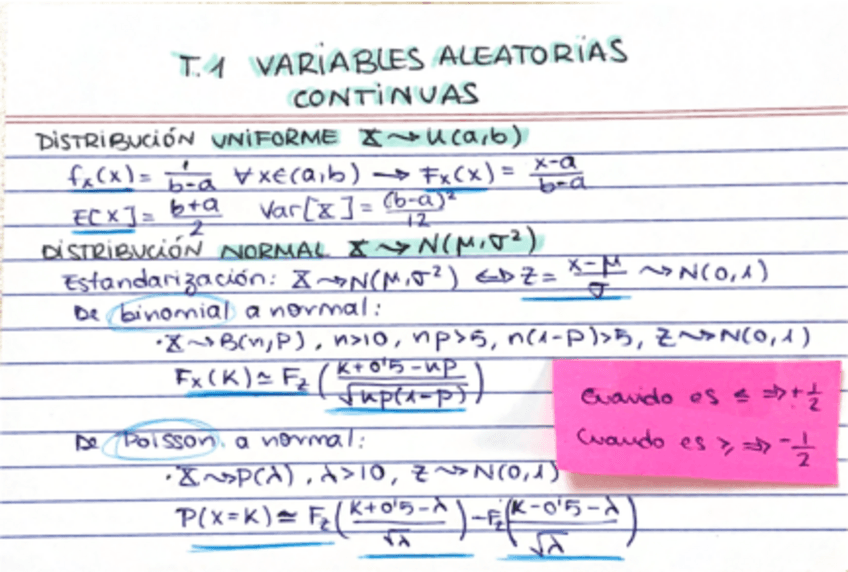 T.1 VARIABLES ALEATORIAS
CONTINUAS
DISTRIBUCIÓN UNIFORME X ⇝ U(a,b)
fₓ(x) = 1/(b-a) ∀ x∈(a,b) → Fₓ(x) = (x-a)/(b-a)
E[X] = (b+a)/2 Var[X] = (b-a)²/12
DISTRIBUCIÓN NORMAL X ⇝ N(μ,σ²)
Estandarización: X ⇝ N(μ,σ²) ⇔ Z = (x-μ)/σ ⇝ N(0,1)
De binomial a normal:
·X ⇝ B(n,p), n>10, np>5, n(1-p)>5, Z ⇝ N(0,1)
Fₓ(K) ≃ F_z ((K+0'5-np)/√np(1-p))
Cuando es ≤ ⇒ +1/2
Cuando es ≥ ⇒ -1/2
De Poisson a normal:
·X ⇝ P(λ), λ>10, Z ⇝ N(0,1)
P(x=K) ≃ F_z ((K+0'5-λ)/√λ) - F_z ((K-0'5-λ)/√λ)